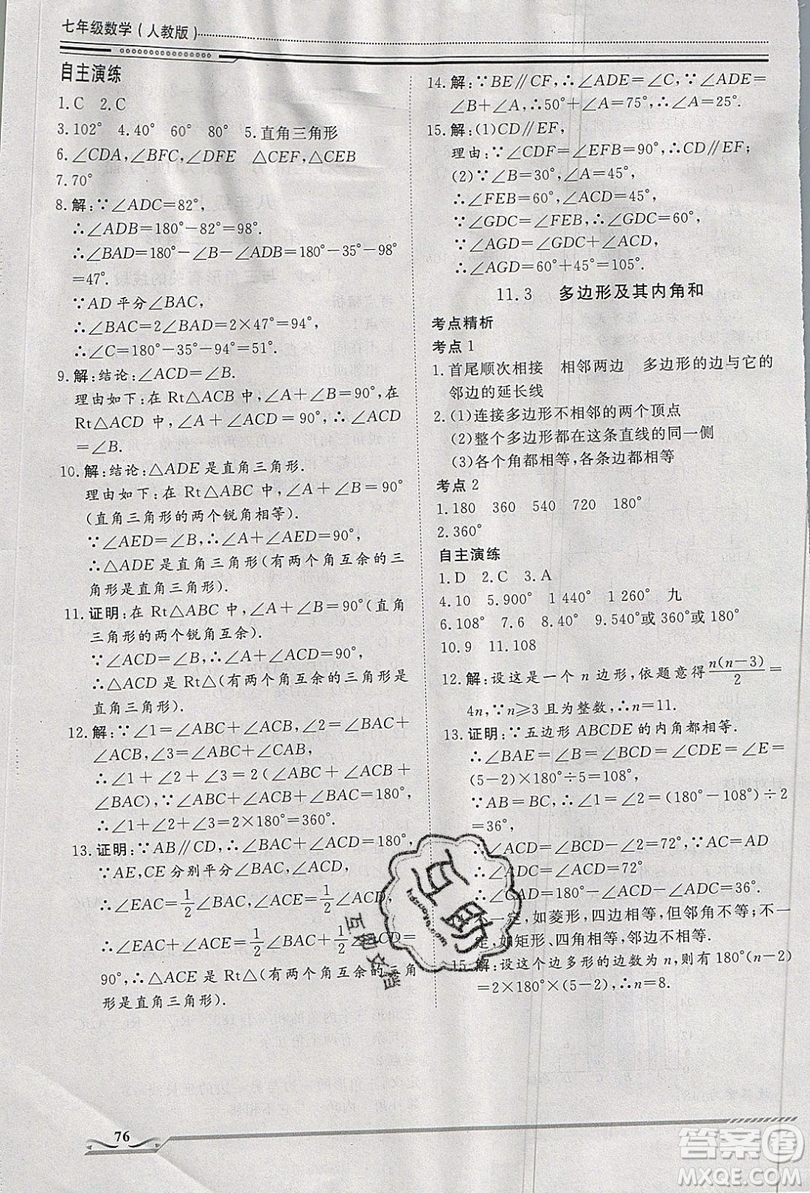 七年级数学(人教版)
自主演练
1.C 2.C
3.102° 4.40° 60° 80° 5.直角三角形
6.∠CDA,∠BFC,∠DFE △CEF,△CEB
7.70°
8.解:∵∠ADC=82°,
∴∠ADB=180°-82°=98°.
∴∠BAD=180°-∠B-∠ADB=180°-35°-98°
=47°.
∵AD平分∠BAC,
∴∠BAC=2∠BAD=2×47°=94°.
∴∠C=180°-35°-94°=51°.
9.解:结论:∠ACD=∠B.
理由如下:在Rt△ABC中,∠A+∠B=90°,在
Rt△ACD中,∠A+∠ACD=90°,∴∠ACD
=∠B.
10.解:结论:△ADE是直角三角形.
理由如下:在Rt△ABC中,∠A+∠B=90°
(直角三角形的两个锐角相等).
∵∠AED=∠B,∴∠A+∠AED=90°.
∴△ADE是直角三角形(有两个角互余的三
角形是直角三角形).
11.证明:在Rt△ABC中,∠A+∠B=90°(直角
三角形的两个锐角互余).
∵∠ACD=∠B,∴∠A+∠ACD=90°.
∴△ACD是Rt△(有两个角互余的三角形是
直角三角形).
12.解:∵∠1=∠ABC+∠ACB,∠2=∠BAC
+∠ACB,∠3=∠ABC+∠CAB,
∴∠1+∠2+∠3=2(∠BAC+∠ACB+
∠ABC),∵∠BAC+∠ACB+∠ABC=180°,
∴∠1+∠2+∠3=2×180°=360°.
13.证明:∵AB∥CD,∴∠BAC+∠ACD=180°.
∵AE,CE分别平分∠BAC,∠ACD,
∴∠EAC=1/2∠BAC,∠ACE=1/2∠ACD,
∴∠EAC+∠ACE=1/2(∠BAC+∠ACD)=
90°,∴△ACE是Rt△(有两个角互余的三角
形是直角三角形).
14.解:∵BE∥CF,∴∠ADE=∠C,∵∠ADE=
∠B+∠A,∴50°+∠A=75°,∴∠A=25°.
15.解:(1)CD∥EF,
理由:∵∠CDF=∠EFB=90°,∴CD∥EF.
(2)∵∠B=30°,∠A=45°,
∴∠FEB=60°,∠ACD=45°,
∴∠GDC=∠FEB=60°,
∴∠AGD=∠GDC+∠ACD,
∴∠AGD=60°+45°=105°.
11.3 多边形及其内角和
考点精析
考点1
1.首尾顺次相接 相邻两边 多边形的边与它的
邻边的延长线
2.(1)连接多边形不相邻的两个顶点
(2)整个多边形都在这条直线的同一侧
(3)各个角都相等、各条边都相等
考点2
1.180 360 540 720 180°
2.360°
自主演练
1.D 2.C 3.A
4.10 5.900° 135° 1 260° 九
6.108° 7.135° 8.90° 9.540°或360°或180°
10.9 11.108
12.解:设这是一个n边形,依题意得n(n-3)/2=
4n,∵n≥3且为整数,∴n=11.
13.证明:∵五边形ABCDE的内角都相等,
∴∠BAE=∠B=∠BCD=∠CDE=∠E=
(5-2)×180°÷5=108°,
∵AB=BC,∴∠ACB=(180°-108°)÷2
=36°,
∴∠ACD=∠BCD-∠1=72°,∵AC=AD
∴∠ADC=∠ACD=72°
∴∠CAD=180°-∠ACD-∠ADC=36°.
一定,如菱形,四边相等,但邻角不相等;不一
定,如矩形、四角相等,邻边不相等.
15.解:设这个边多形的边数为n,则180°(n-2)
=2×180°×(5-2),∴n=8.
互助
互助文档
76
答案圈
MXQE.COM